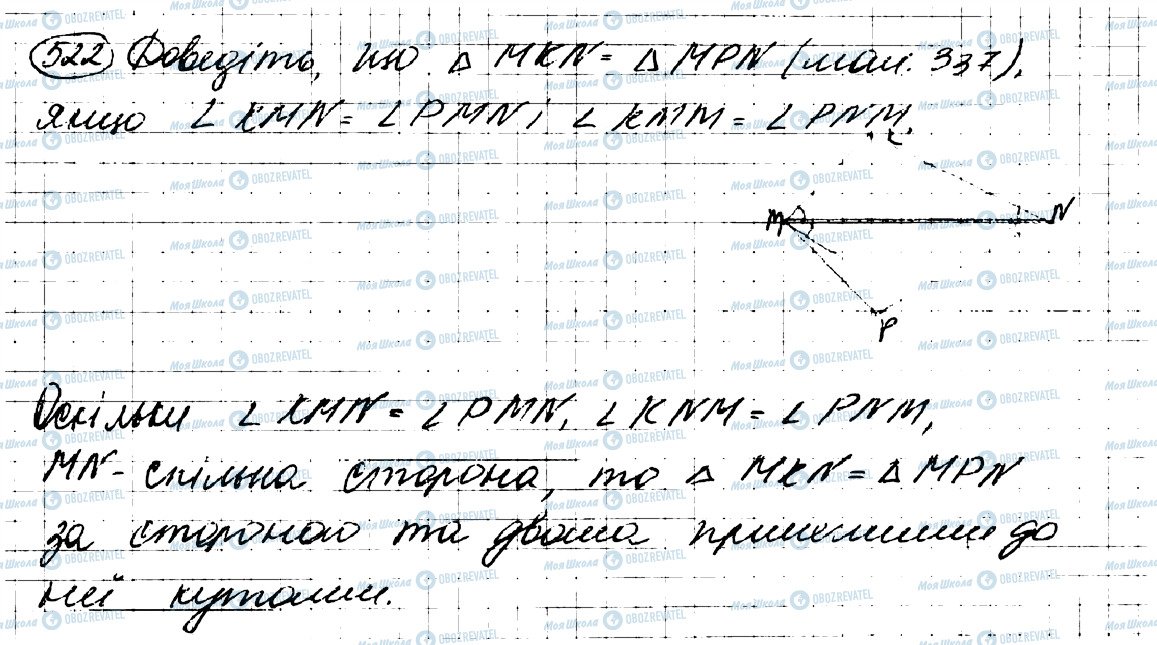 522 Доведіть, що △ MKN = △ MPN (мал. 337),
якщо ∠ KMN = ∠ PMN і ∠ KMM = ∠ PNM.
M
N
P
Оскільки ∠ KMN = ∠ PMN, ∠ KNM = ∠ PNM,
MN - спільна сторона, то △ MKN = △ MPN
за стороною та двома прилеглими до
неї кутами.